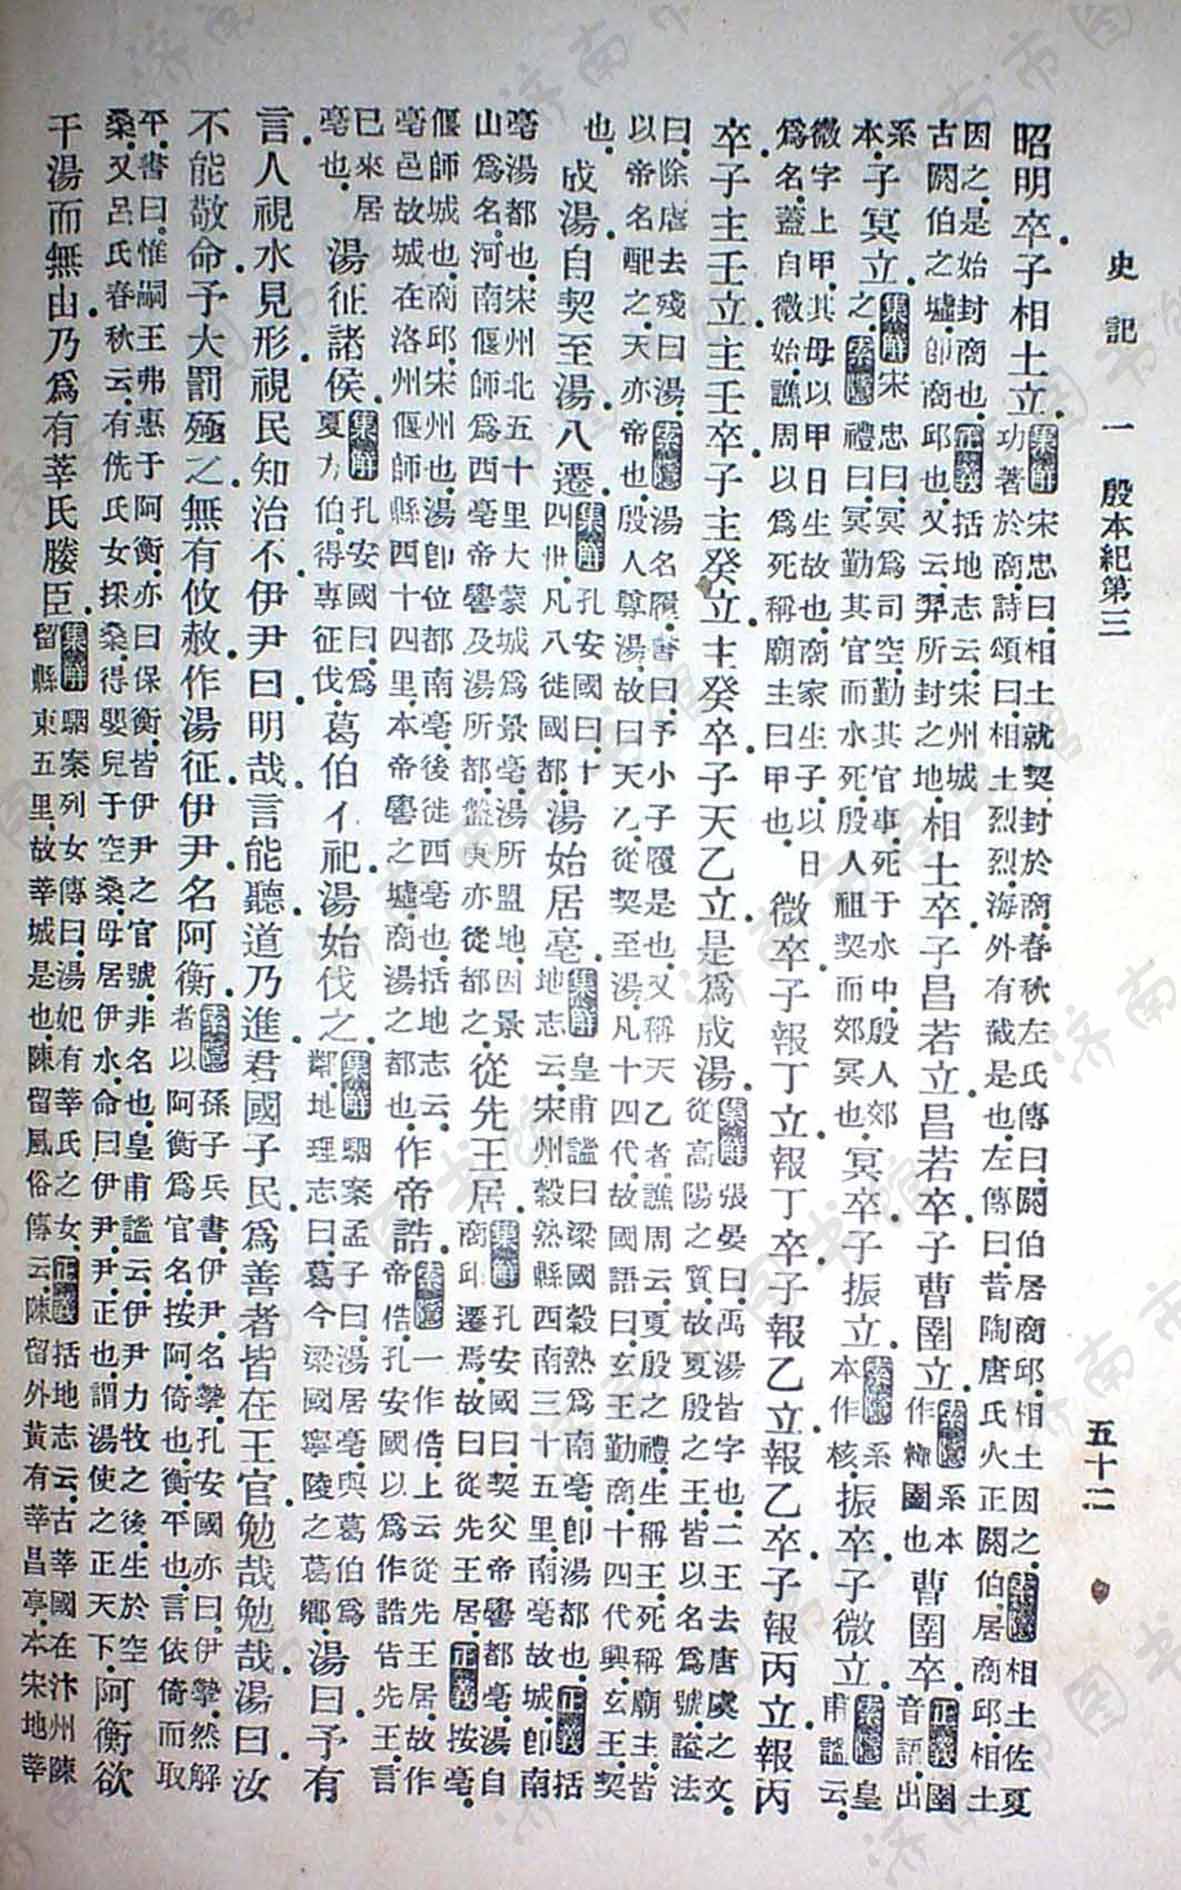 史記 一 殷本紀第三 五十二
昭明卒。子相土立。集解宋忠曰。相土就契封於商。春秋左氏傳曰。閼伯居商邱。相土因之。索隱相土佐夏功著於商。詩頌曰。相土烈烈。海外有截。是也。左傳曰。昔陶唐氏火正閼伯。居商邱。相土
因之。是始封商也。正義括地志云。宋州城古閼伯之墟。卽商邱也。又云。羿所封之地。相土卒。子昌若立。昌若卒。子曹圉立。索隱系本作糧圉也曹圉卒。正義圉音語。出
系本。子冥立。集解宋忠曰。冥爲司空。勤其官事。死于水中。殷人郊之。索隱禮曰。冥勤其官而水死。殷人祖契而郊冥也。冥卒。子振立。索隱系本作核。振卒。子微立。索隱皇甫謐云。
微字上甲。其母以甲日生故也。商家生子。以日爲名。蓋自微始。譙周以爲死稱廟主曰甲也。微卒。子報丁立。報丁卒。子報乙立。報乙卒。子報丙立。報丙
卒。子主壬立。主壬卒。子主癸立。主癸卒。子天乙立。是爲成湯。集解張晏曰。禹湯皆字也。二王去唐虞之文。從高陽之質。故夏殷之王。皆以名爲號。諡法
曰。除虐去殘曰湯。索隱湯名履。書曰予小子履是也。又稱天乙者。譙周云。夏殷之禮。生稱王。死稱廟主。皆以帝名配之。天亦帝也。殷人尊湯。故曰天乙。從契至湯。凡十四代。故國語曰。玄王勤商。十四代興。玄王契
也。成湯自契至湯八遷。集解孔安國曰。十四世凡八徙國都。湯始居亳。集解皇甫謐曰。梁國穀熟爲南亳。卽湯都也。正義括地志云。宋州穀熟縣西南三十五里。南亳故城。卽南
亳湯都也。宋州北五十里大蒙城爲景亳。湯所盟地。因景山爲名。河南偃師爲西亳。帝嚳及湯所都。盤庚亦從都之。從先王居。集解孔安國曰。契父帝嚳都亳。湯自商邱遷焉。故曰從先王居。正義按亳。
偃師城也。商邱。宋州也。湯卽位都南亳。後徙西亳也。括地志云。亳邑故城。在洛州偃師縣西十四里。本帝嚳之墟。商湯之都也。作帝誥。索隱一作俈。上云從先王居。故作帝俈。孔安國以爲作誥告先王。言
已來居亳也。湯征諸侯。集解孔安國曰。爲夏方伯。得專征伐。葛伯不祀。湯始伐之。集解駰案孟子曰。湯居亳。與葛伯爲鄰。地理志曰。葛今梁國寧陵之葛鄉。湯曰。予有
言。人視水見形。視民知治不。伊尹曰。明哉。言能聽。道乃進。君國子民。爲善者皆在王官。勉哉勉哉。湯曰。汝
不能敬命。予大罰殛之。無有攸赦。作湯征。伊尹。名阿衡。索隱孫子兵書。伊尹。名摯。孔安國亦曰。伊摯。然解者以阿衡爲官名。按阿。倚也。衡。平也。言依倚而取
平。書曰。惟嗣王弗惠于阿衡。亦曰保衡。皆伊尹之官號。非名也。皇甫謐云。伊尹力牧之後。生於空桑。又呂氏春秋云。有侁氏女採桑。得嬰兒于空桑。母居伊水。命曰伊尹。尹。正也。謂湯使之正天下。阿衡欲
干湯而無由。乃爲有莘氏媵臣。集解駰案列女傳曰。湯妃有莘氏之女。正義括地志云。古莘國在汴州陳留縣東五里。故莘城是也。陳留風俗傳云。陳留外黃有莘昌亭。本宋地。莘
濟南市图书馆